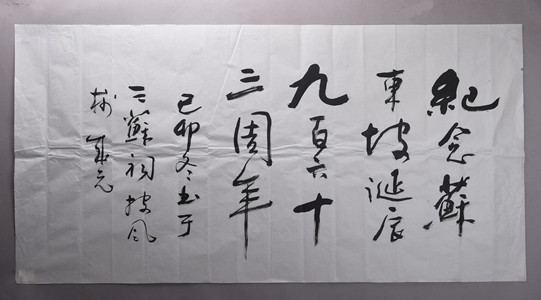 紀念蘇
東坡誕辰
九百六十
三周年
己卯冬书于
三蘇祠披风
榭 元